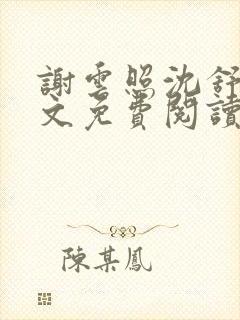 謝雲照沈舒
文免費閱讀
陳某鳳